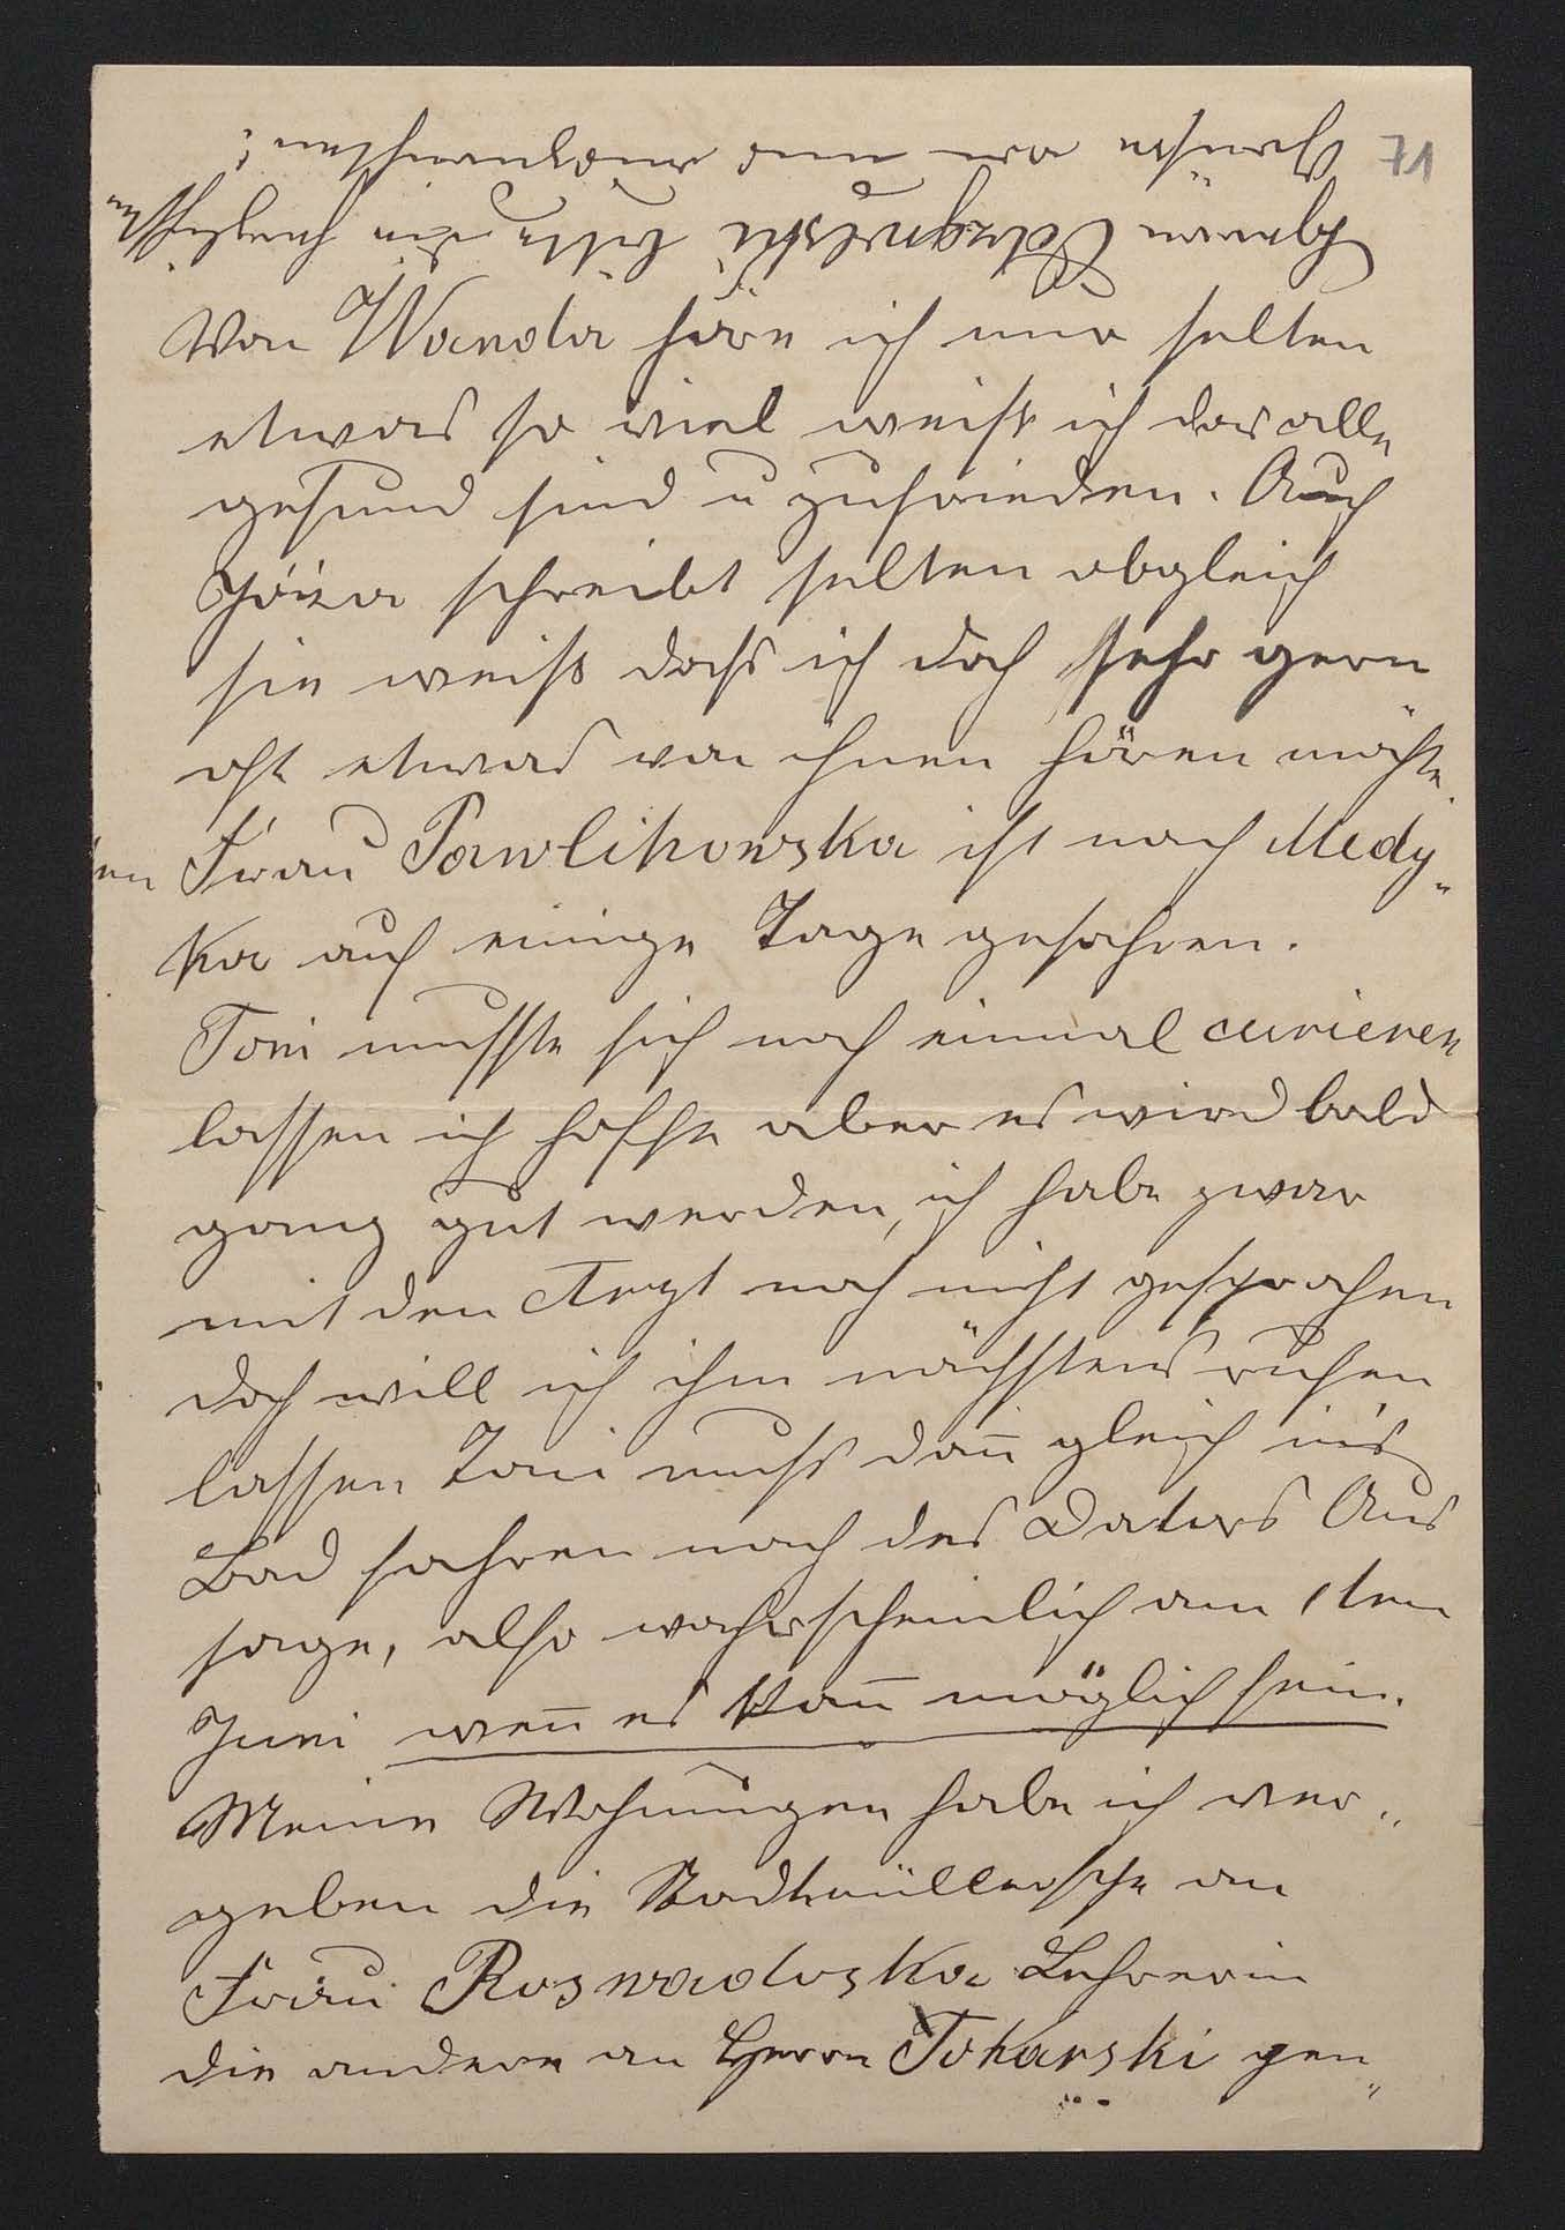 71
Herrn Odrzywolski bitte die herzlichsten
Grüsse von uns auszurichten;
Von Wanda höre ich nur selten
etwas so viel weiß ich das alle
gesund sind u zufrieden. Auch
Józia schreibt selten obgleich
sie weiß dass ich doch sehr gern
oft etwas von ihnen hören möchte.
Frau Pawlikowska ist nach Medy„
ka auf einige Tage gefahren.
Toni musste sich noch einmal curieren
lassen ich hoffe aber es wird bald
ganz gut werden, ich habe zwar
mit den Arzt noch nicht gesprochen
doch will ich ihn nächstens rufen
lassen Toni muss dan̄ gleich in's
Bad fahren nach des Doctors Aus
sage, also wahrscheinlich am 1ten
Juni wen̄ es kan̄ möglich sein.
Meine Wohnungen habe ich ver„
geben die Stadtmüllerische an
Frau Roswadoska Lehrerin
die andere an Herrn Tokarski gen„